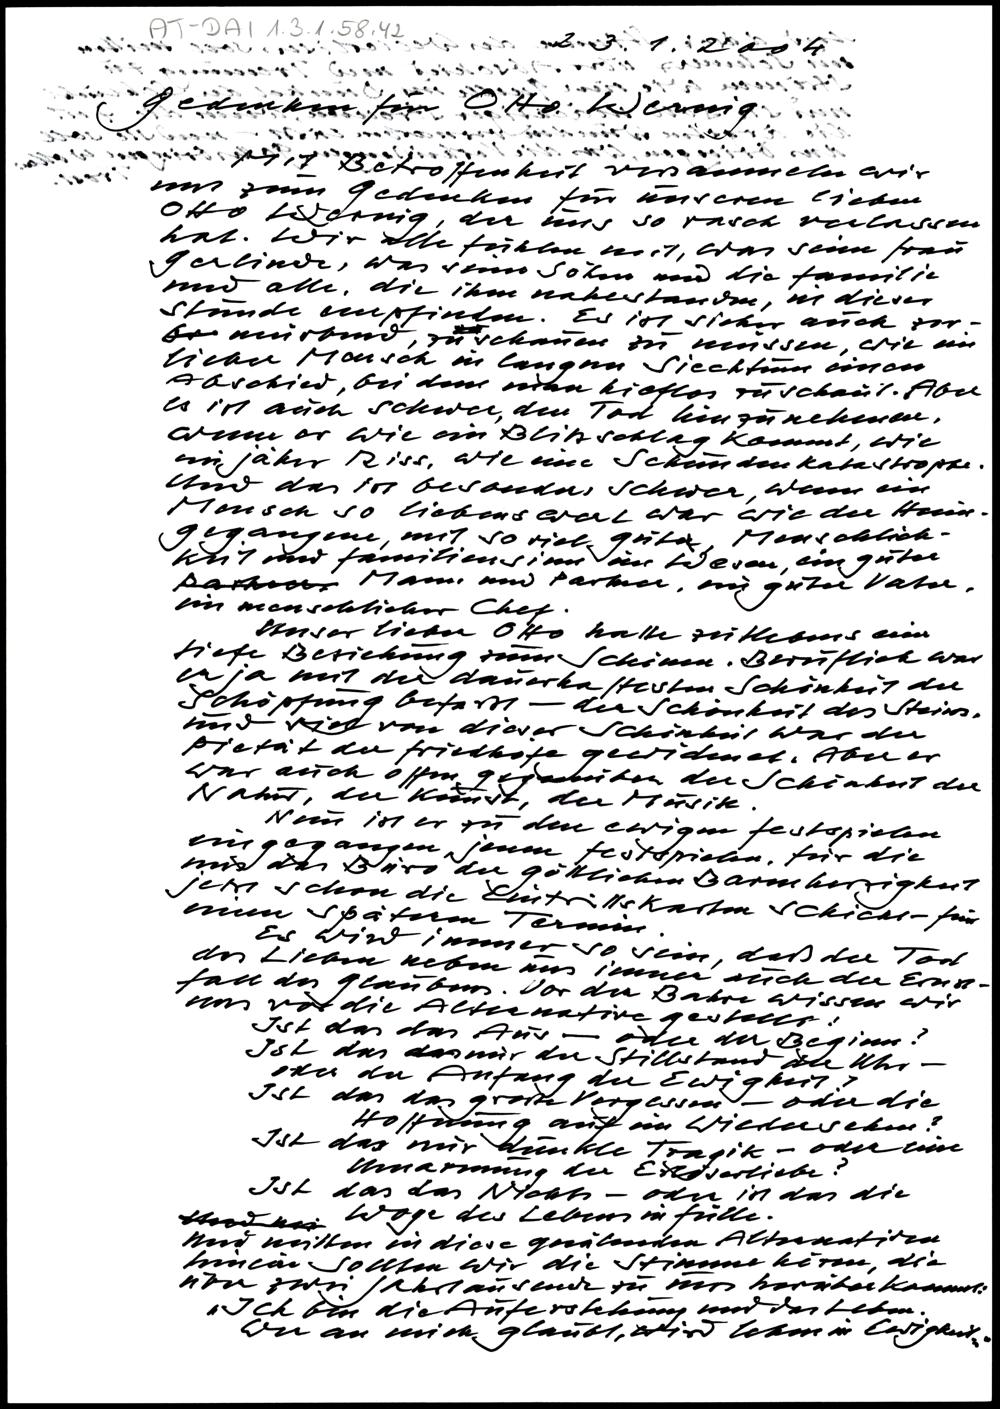 AT-DAI 1.3.1.58.42
23.1.2004
Gedenken für Otto Wernig
Mit Betroffenheit versammeln wir
uns zum Gedenken für unseren lieben
Otto Wernig, der uns so rasch verlassen
hat. Wir alle fühlen mit, was seine Frau
Gerlinde, was seine Söhne und die Familie
und alle, die ihm nahestanden, in dieser
Stunde empfinden. Es ist sicher auch zer-
mürbend, zuschauen zu müssen, wie ein
lieber Mensch in langem Siechtum einen
Abschied, bei dem man hilflos zuschaut. Aber
es ist auch schwer, den Tod hinzunehmen,
wenn er wie ein Blitzschlag kommt, wie
ein jäher Riss, wie eine Sekundenkatastrophe.
Und das ist besonders schwer, wenn ein
Mensch so liebenswert war wie der Heim-
gegangene, mit so viel Güte, Menschlich-
keit und Familiensinn im Wesen, ein guter
Partner Mann und Partner, ein guter Vater,
ein menschlicher Chef.
Unser lieber Otto hatte zeitlebens eine
tiefe Beziehung zum Schönen. Beruflich war
er ja mit der dauerhaftesten Schönheit der
Schöpfung befasst – der Schönheit des Steins.
Und viel von dieser Schönheit war der
Pietät der Friedhöfe gewidmet. Aber er
war auch offen gegenüber der Schönheit der
Natur, der Kunst, der Musik.
Nun ist er zu den ewigen Festspielen
eingegangen, jenen Festspielen, für die
uns das Büro der göttlichen Barmherzigkeit
jetzt schon die Eintrittskarten schickt – für
einen späteren Termin.
Es wird immer so sein, daß der Tod
des Lieben neben uns immer auch der Ernst-
fall des Glaubens. Vor der Bahre wissen wir
uns vor die Alternative gestellt:
Ist das das Aus – oder der Beginn?
Ist das nur der Stillstand der Uhr –
oder der Anfang der Ewigkeit?
Ist das das große Vergessen – oder die
Hoffnung auf ein Wiedersehen?
Ist das nur dunkle Tragik – oder eine
Umarmung der Erlöserliebe?
Ist das das Nichts – oder ist das die
Woge des Lebens in Fülle.
Und mitten in diese quälenden Alternativen
hinein sollten wir die Stimme hören, die
über zwei Jahrtausende zu uns herüberkommt:
„Ich bin die Auferstehung und das Leben.
Wer an mich glaubt, wird leben in Ewigkeit."